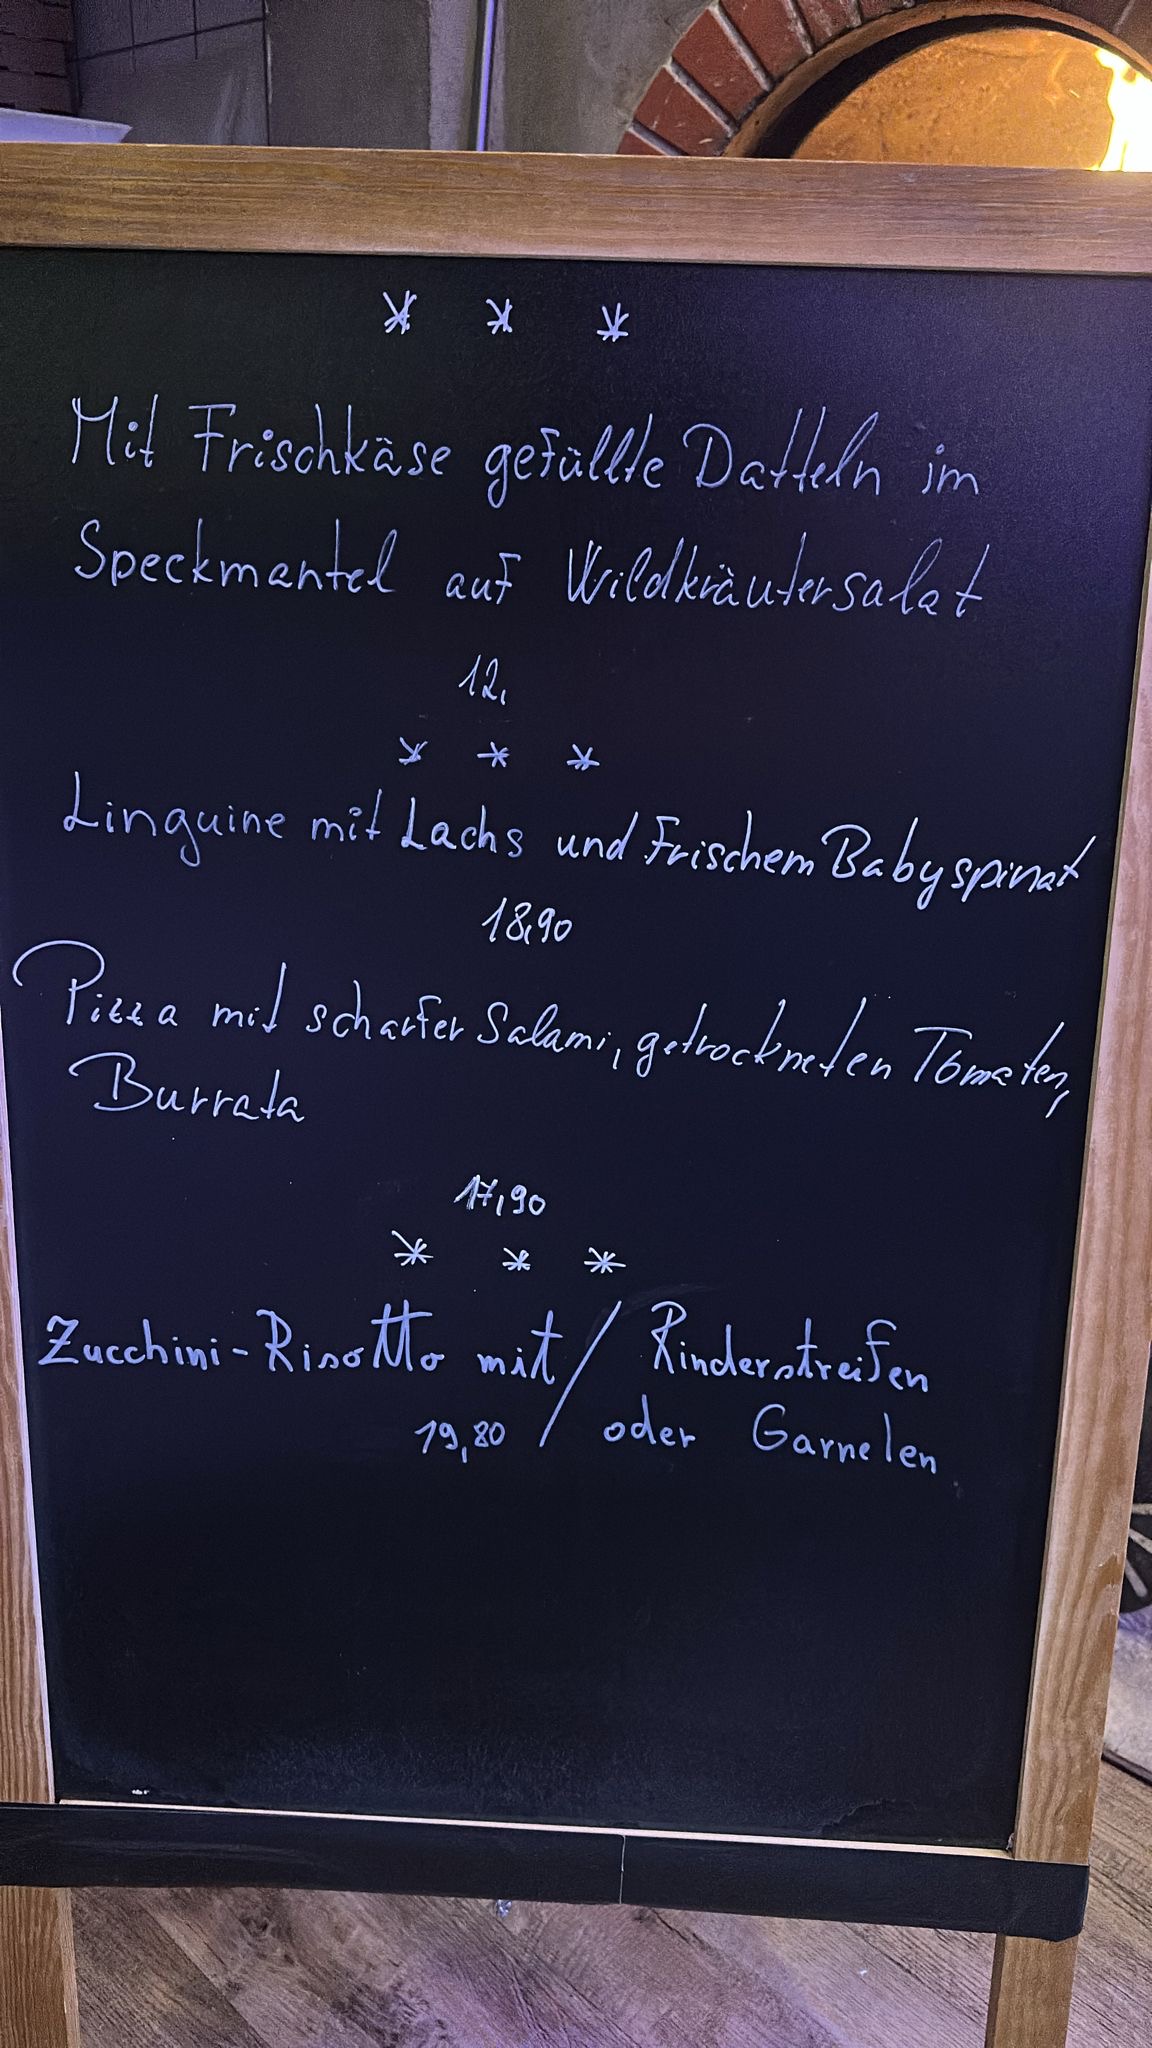 * * *
Mit Frischkäse gefüllte Datteln im
Speckmantel auf Wildkräutersalat
12,
* * *
Linguine mit Lachs und frischem Babyspinat
18,90
Pizza mit scharfer Salami, getrockneten Tomaten,
Burrata
17,90
* * *
Zucchini-Risotto mit / Rinderstreifen
19,80 / oder Garnelen